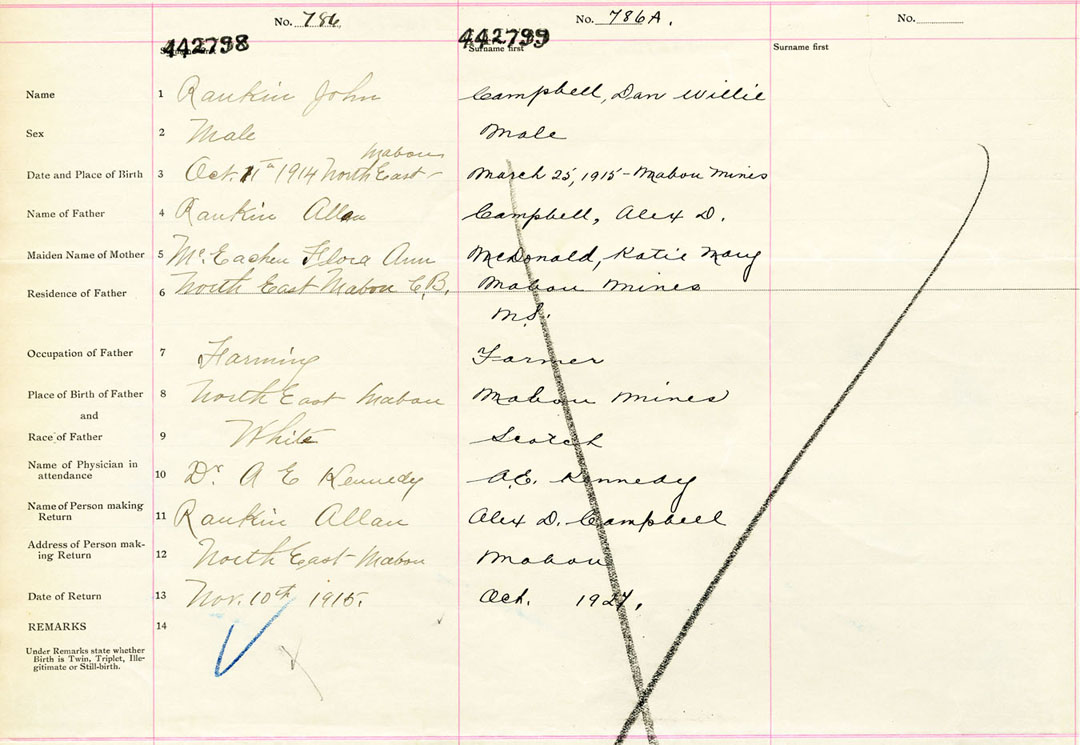 No. 786
No. 786A.
No.
442798
442799
Surname first
Surname first
Surname first
Name 1 Rankin John Campbell, Dan Willie
Sex 2 Male Male
Mabou
Date and Place of Birth 3 Oct. 11th 1914 North East - March 25, 1915 - Mabou Mines
Name of Father 4 Rankin Allan Campbell, Alex D.
Maiden Name of Mother 5 Mc.Eachen Flora Ann McDonald, Katie Mary
Residence of Father 6 North East Mabou C.B. Mabou Mines
N.S.
Occupation of Father 7 Farming Farmer
Place of Birth of Father 8 North East Mabou Mabou Mines
and
Race of Father 9 White Scotch
Name of Physician in
attendance 10 Dr. A E Kennedy A.E. Kennedy
Name of Person making
Return 11 Rankin Allan Alex D. Campbell
Address of Person mak-
ing Return 12 North East Mabou Mabou
Date of Return 13 Nov. 10th 1915. Oct. 1927.
REMARKS 14
Under Remarks state whether
Birth is Twin, Triplet, Ille-
gitimate or Still-birth.